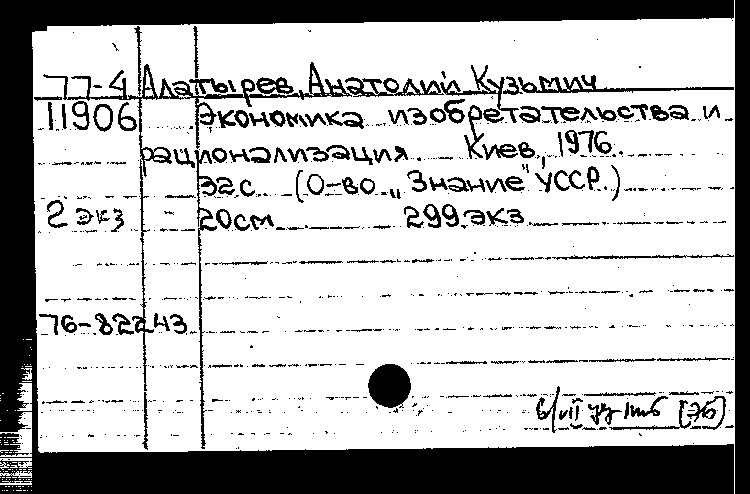 77-4 Алатырев, Анатолий Кузьмич
11906 Экономика изобретательства и
рационализация. Киев, 1976.
32с. (О-во „Знание" УССР.)
2 экз 20см. 299.экз.
76-82243
6/VII [ЭБ]